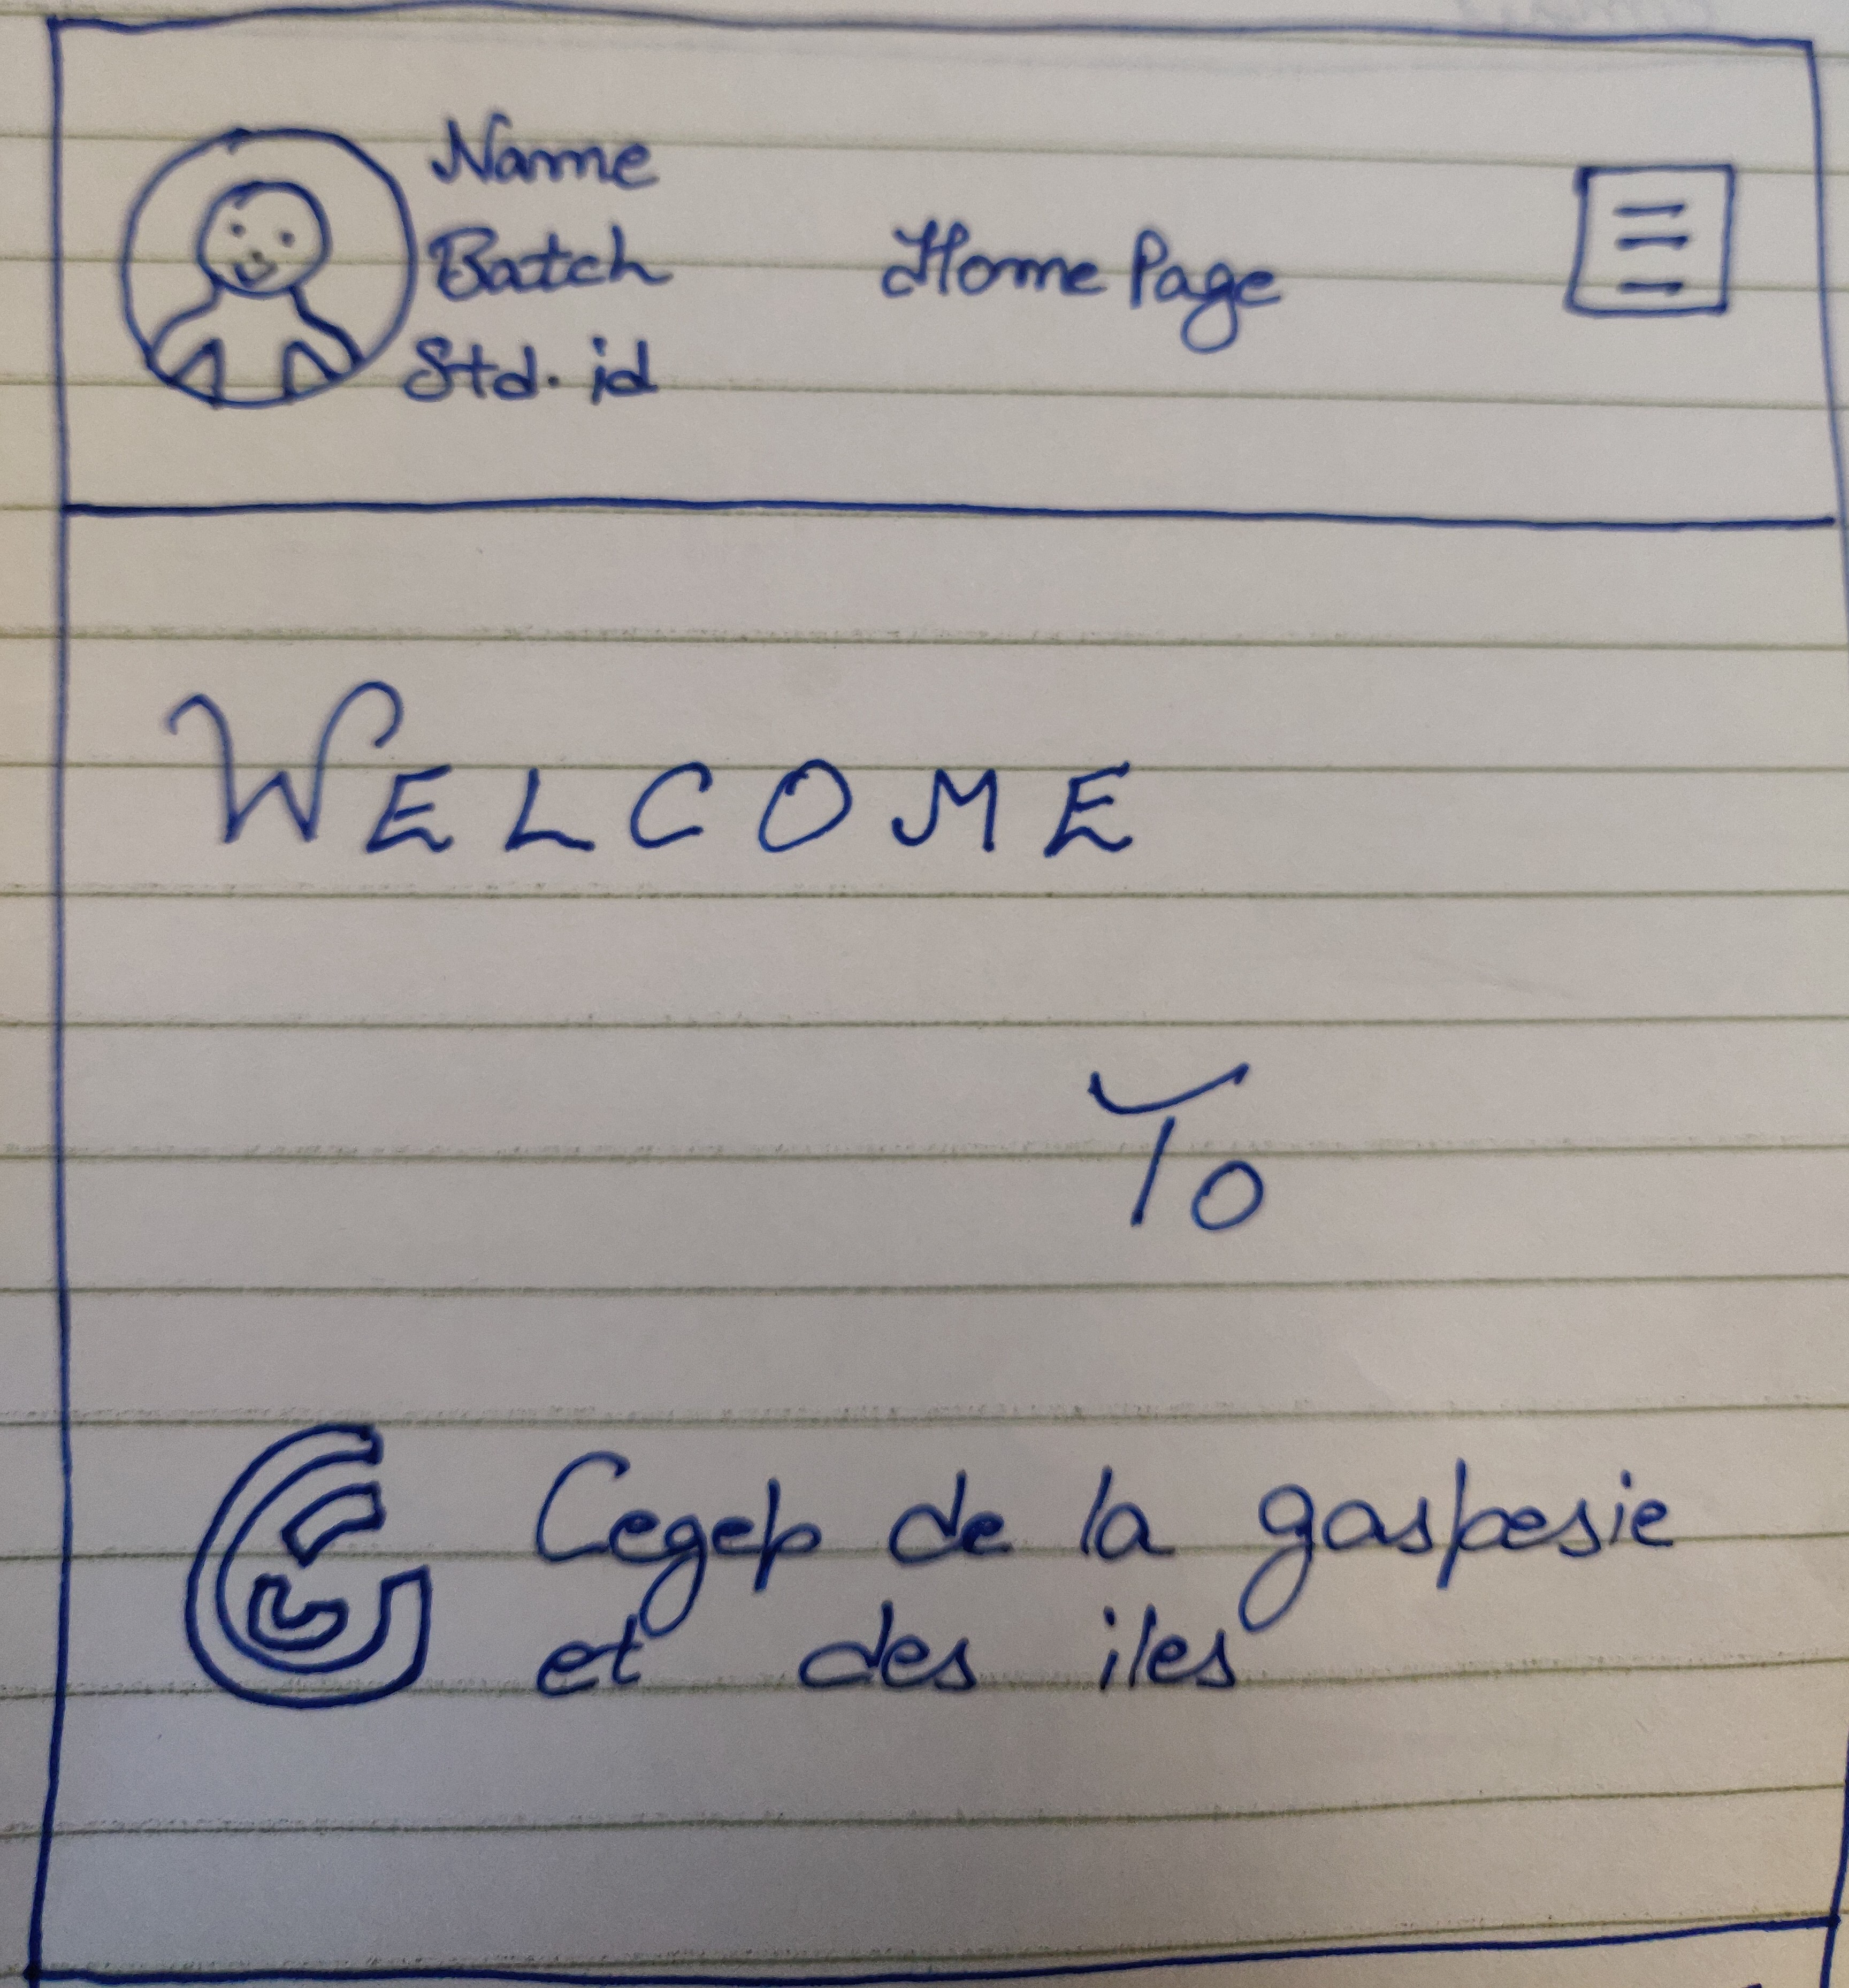 Name
Batch
Std. id
Home Page
WELCOME
To
Cegep de la gaspesie
et des iles